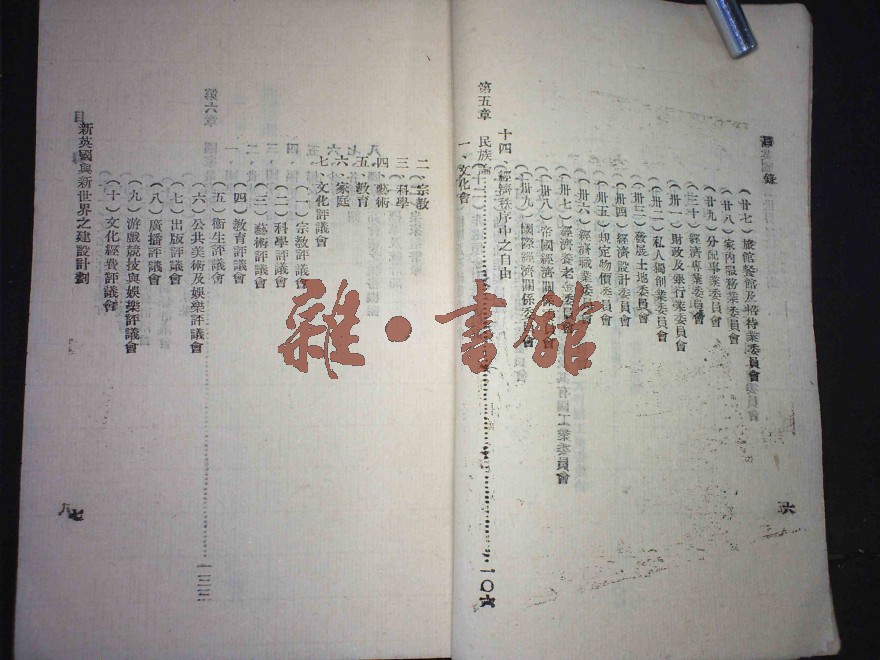 錄
(廿七)旅館餐館及招待業委員會
(廿八)家內職務業委員會
(廿九)分配事業委員會
(三十)經濟專業委員會
(卅一)財政及銀行業委員會
(卅二)私人獨創業委員會
(卅三)發展土地委員會
(卅四)經濟設計委員會
(卅五)規定物價委員會
(卅六)經濟職業委員會
(卅七)經濟養老金委員會
(卅八)帝國經濟關係委員會
(卅九)國際經濟關係委員會
十四、經濟秩序中之自由
第五章 民族論 一〇六
一、文化會
六
二、宗教
三、科學
四、藝術
五、教育
六、家庭
七、文化評議會
(一)宗教評議會
(二)科學評議會
(三)藝術評議會
(四)教育評議會
(五)衞生評議會
(六)公共美術及娛樂評議會
(七)出版評議會
(八)廣播評議會
(九)游戲競技與娛樂評議會
(十)文化經費評議會
第六章
新英國與新世界之建設計劃
目
七
雜·書館